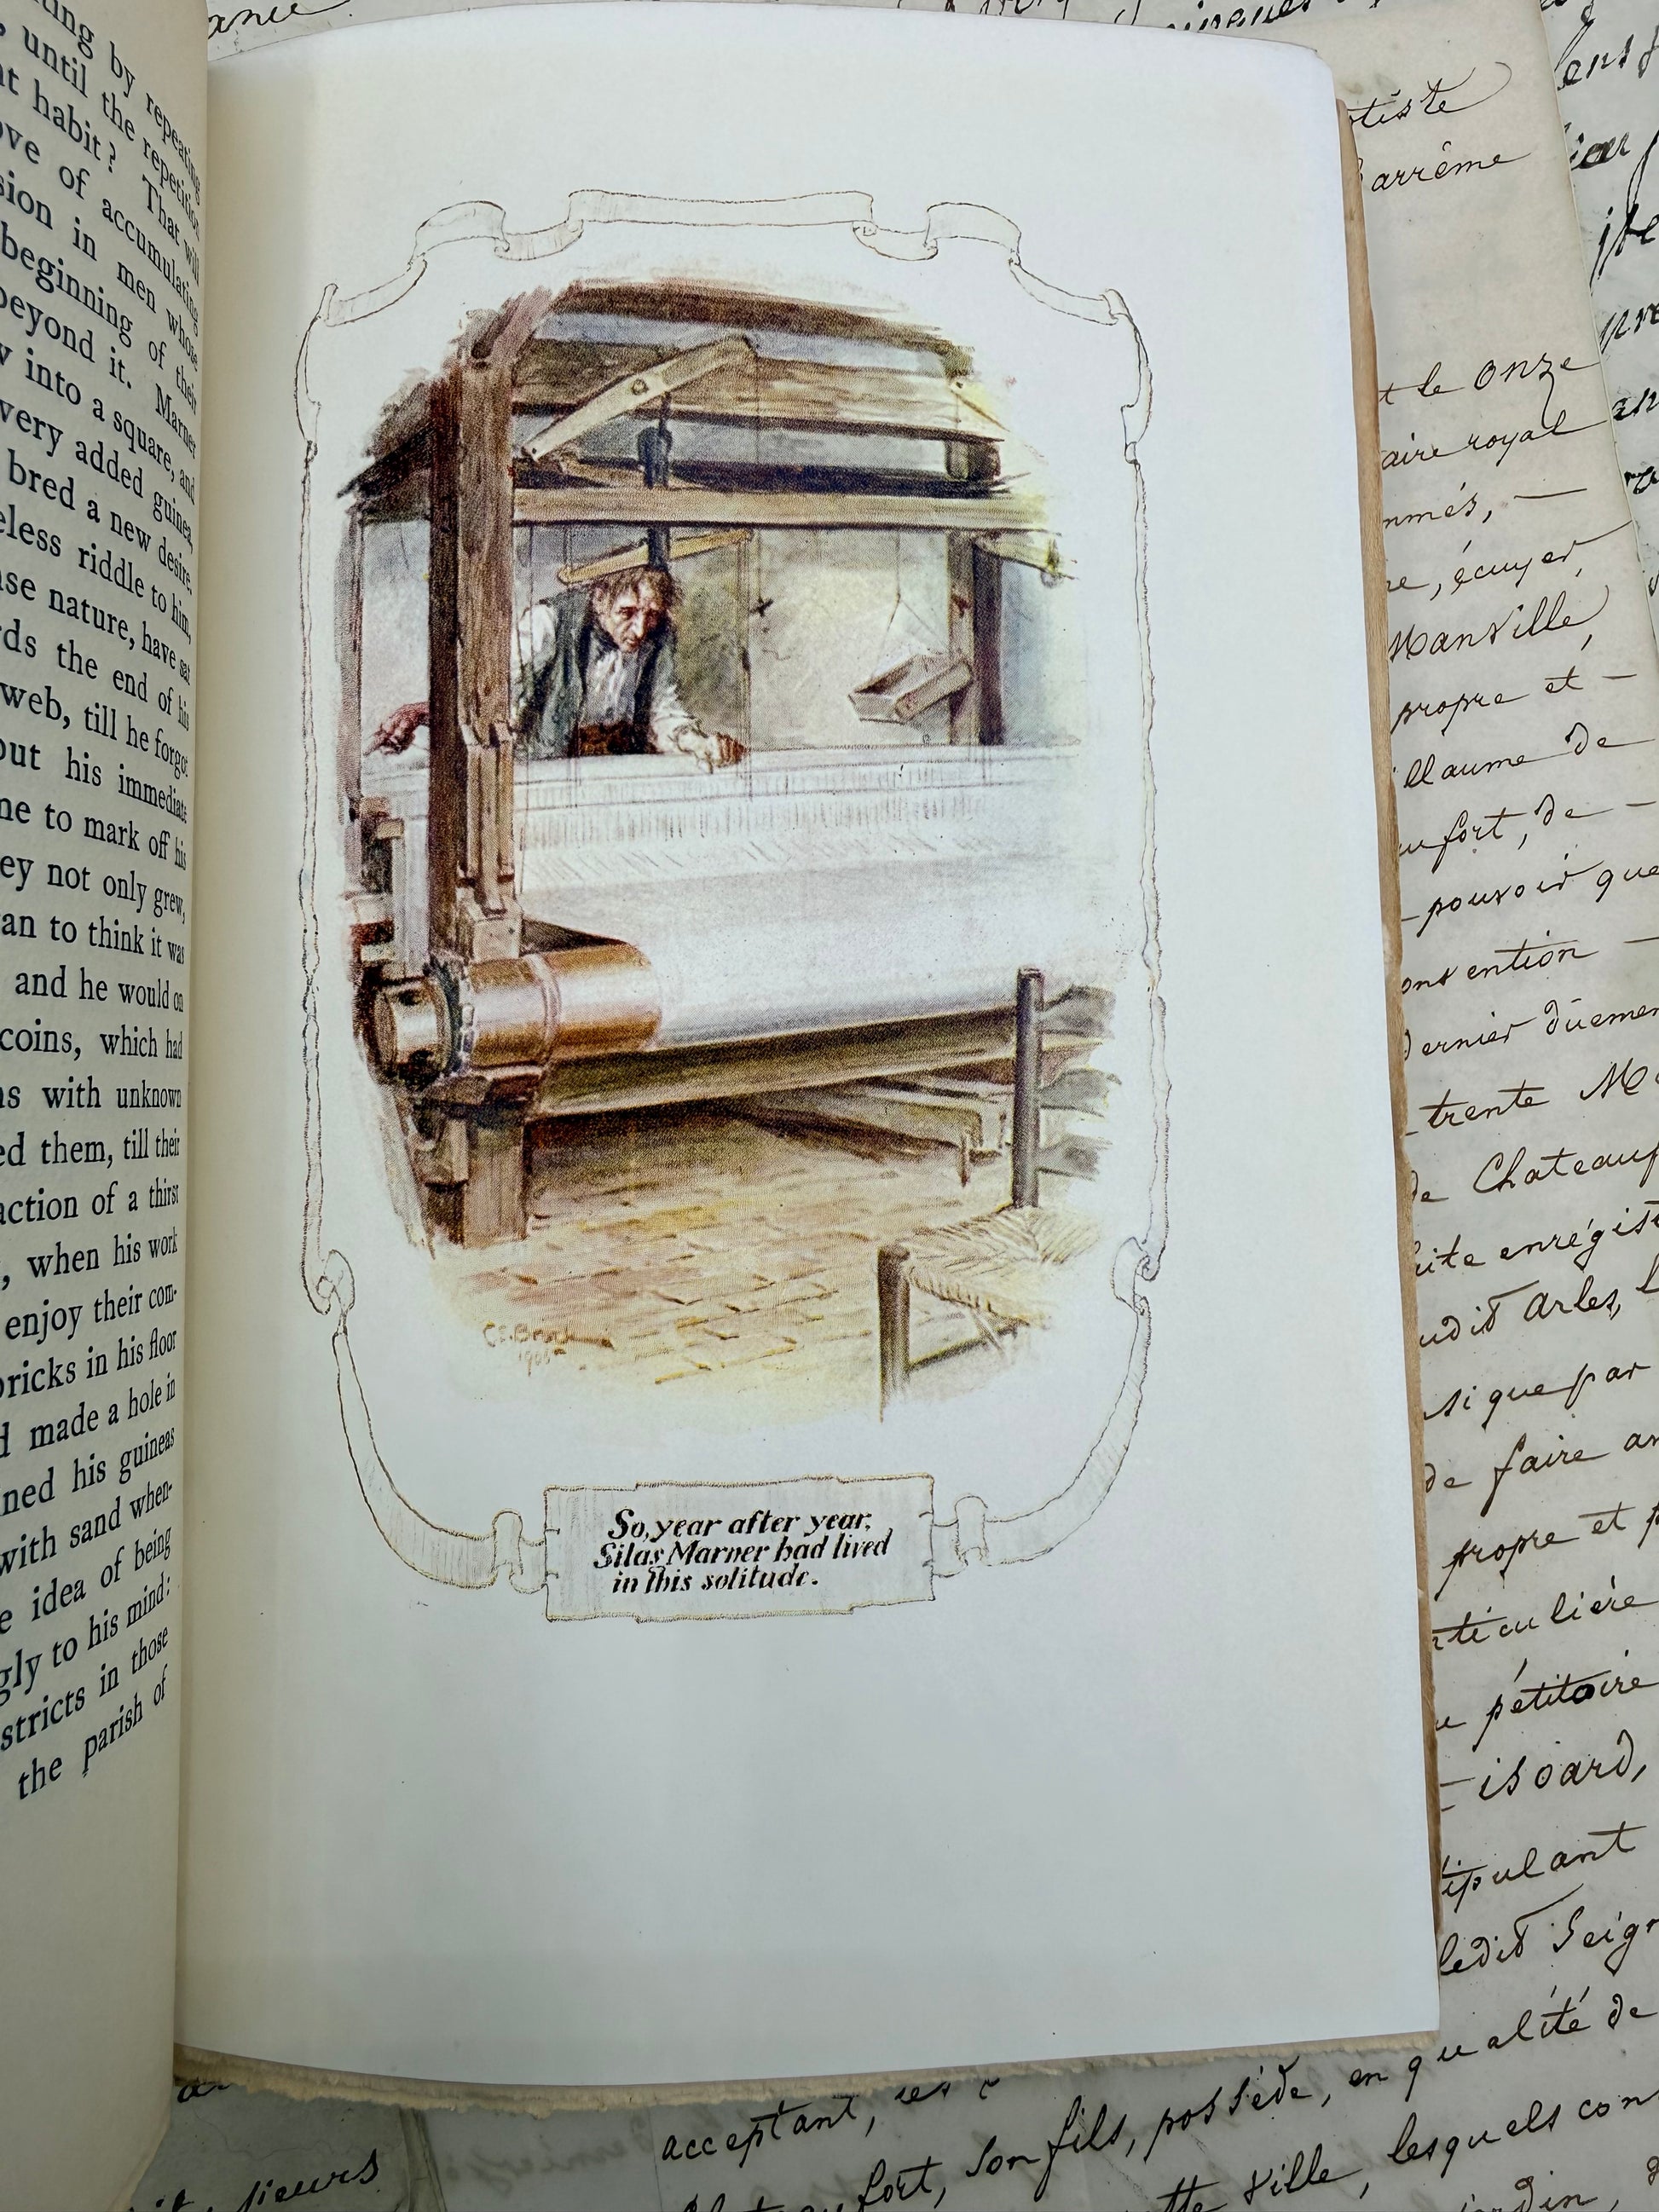 ance
by repeating
until the repetition
habit? That will
of accumulating
sion in men whose
beginning of their
beyond it. Marner
into a square, and
very added guinea,
bred a new desire.
eless riddle to him,
nse nature, have sat
rds the end of his
web, till he forgot
out his immediate
me to mark off his
ey not only grew,
an to think it was
and he would on
coins, which had
ns with unknown
ed them, till their
action of a thirst
, when his work
enjoy their com-
bricks in his floor
d made a hole in
ned his guineas
with sand when-
e idea of being
gly to his mind:
stricts in those
the parish of
C.E. Brock
So, year after year,
Silas Marner had lived
in this solitude.
tiste
Barrême
t le onze
aire royal
mmés, —
re, écuyer,
Manville,
propre et —
illaume de
ufort, de —
pouvoir que
onvention —
dernier düemen
trente Ma
de Chateauf
uite enrégist
udit arles, l
si que par
de faire an
propre et p
rticulière
u pétitoire
isoard,
tipulant
ledit Seign
acceptant, les
ufort, son fils, possède, en qualité de
tte ville, lesquels con
jardin,
sieurs